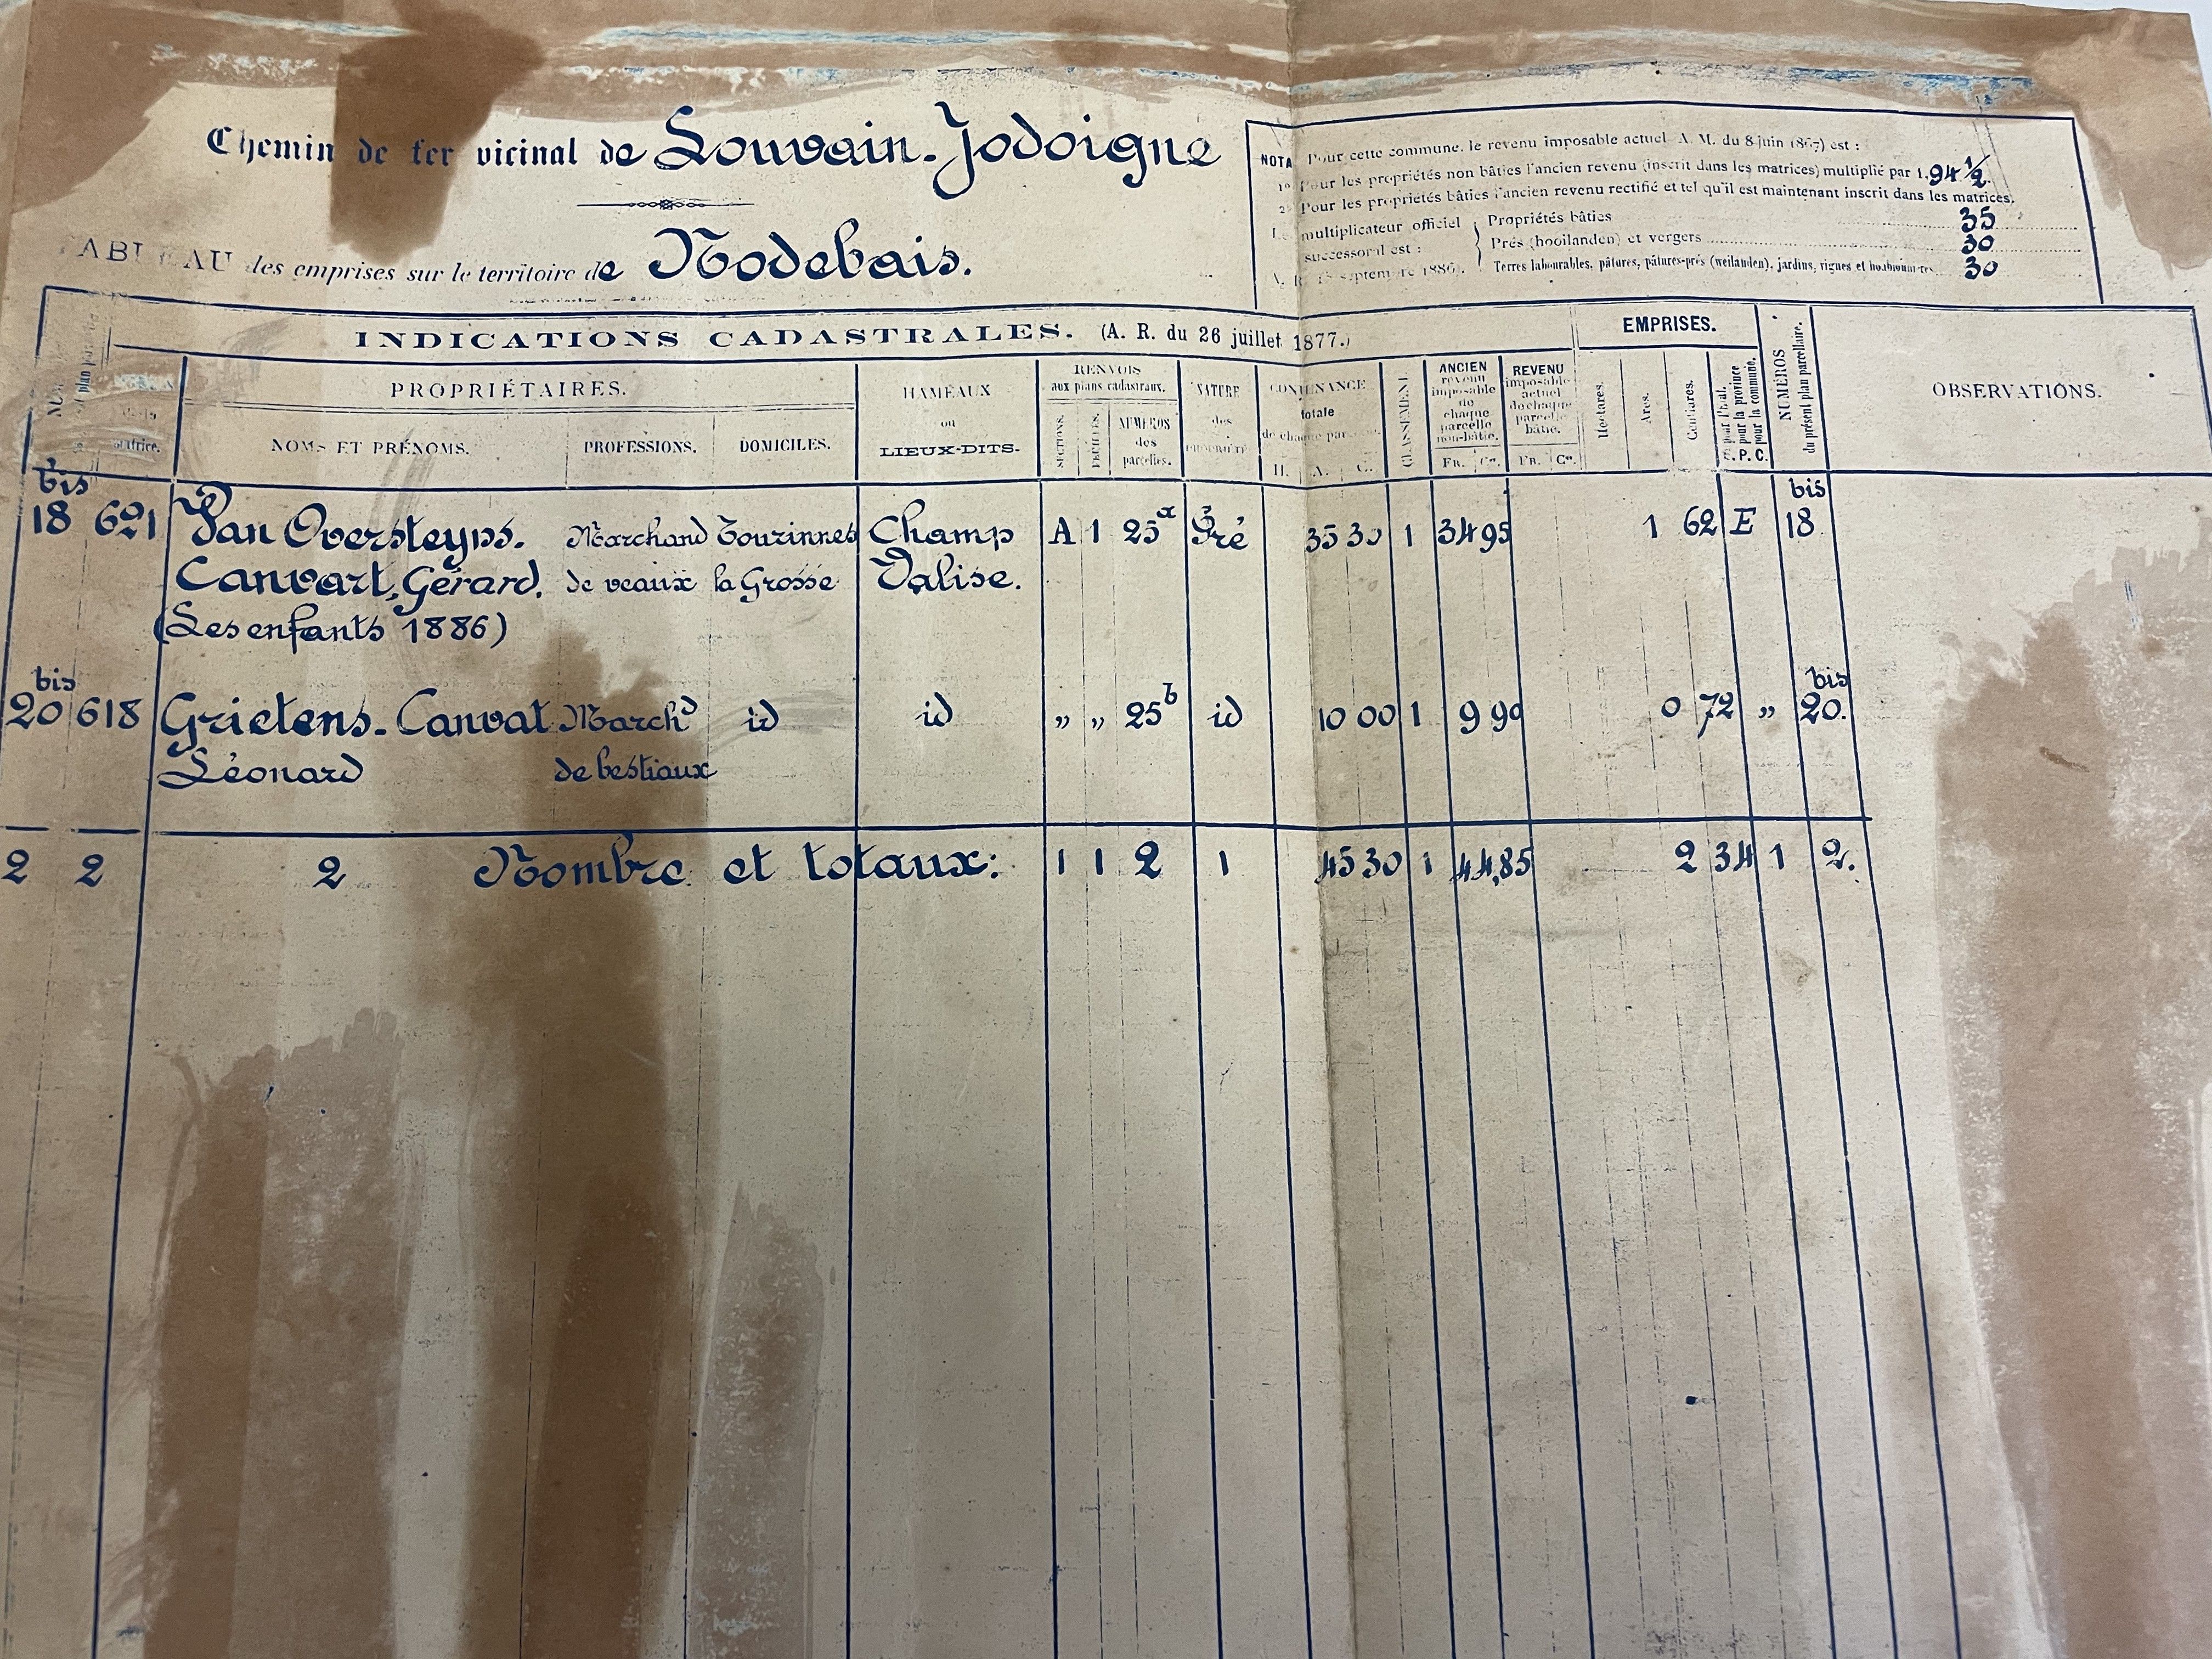 Chemin de fer vicinal de Louvain-Jodoigne
TABLEAU des emprises sur le territoire de Nodebais.
NOTA Pour cette commune, le revenu imposable actuel A. M. du 8 juin 1867) est :
1° Pour les propriétés non bâties l'ancien revenu (inscrit dans les matrices) multiplié par 1.94 1/2.
2° Pour les propriétés bâties l'ancien revenu rectifié et tel qu'il est maintenant inscrit dans les matrices.
multiplicateur officiel
successoral est :
septembre 1886).
Propriétés bâties 35
Prés (hooilanden) et vergers 30
Terres labourables, pâtures, pâtures-prés (weilanden), jardins, vignes et 30
INDICATIONS CADASTRALES. (A. R. du 26 juillet 1877.)
EMPRISES.
plan
matrice.
PROPRIÉTAIRES.
NOMS ET PRÉNOMS.
PROFESSIONS.
DOMICILES.
HAMEAUX
ou
LIEUX-DITS.
RENVOIS
aux plans cadastraux.
SECTIONS.
FEUILLES.
NUMÉROS
des
parcelles.
NATURE
des
CONTENANCE
totale
de chaque
H. A. C.
CLASSEMENT
ANCIEN
revenu
imposable
de
chaque
parcelle
non-bâtie.
Fr. Cs.
REVENU
imposable
actuel
de chaque
parcelle
bâtie.
Fr. Cs.
Hectares.
Ares.
Centiares.
pour l'État.
pour la province
pour la commune.
E. P. C.
NUMÉROS
du présent plan parcellaire.
OBSERVATIONS.
bis bis
18 621 Van Oversteyns. Marchand Tourinnes Champ A 1 25a Pré 35 30 1 34 95 1 62 E 18
Canvart, Gérard. de veaux la Grosse Valise.
(Les enfants 1886)
bis bis
20 618 Grietens-Canvat Marchd id id „ „ 25b id 10 00 1 9 90 0 72 „ 20.
Léonard de bestiaux
2 2 2 Nombre et totaux: 1 1 2 1 45 30 1 44,85 2 34 1 2.